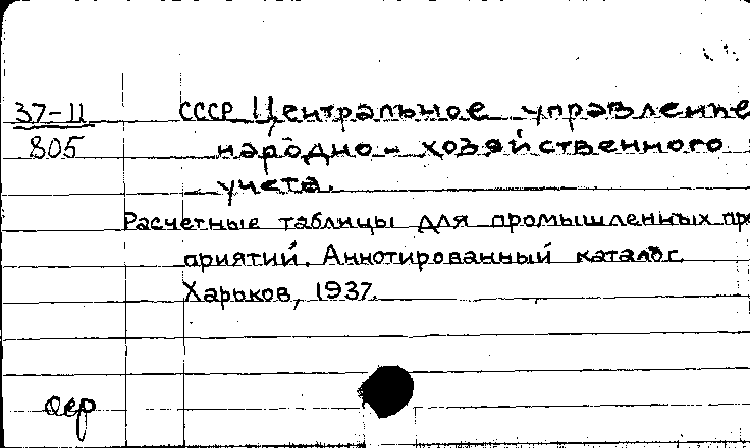 37-11
805
СССР Центральное управление
народно-хозяйственного
учета.
Расчетные таблицы для промышленных пре
приятий. Аннотированный каталог.
Харьков, 1937.